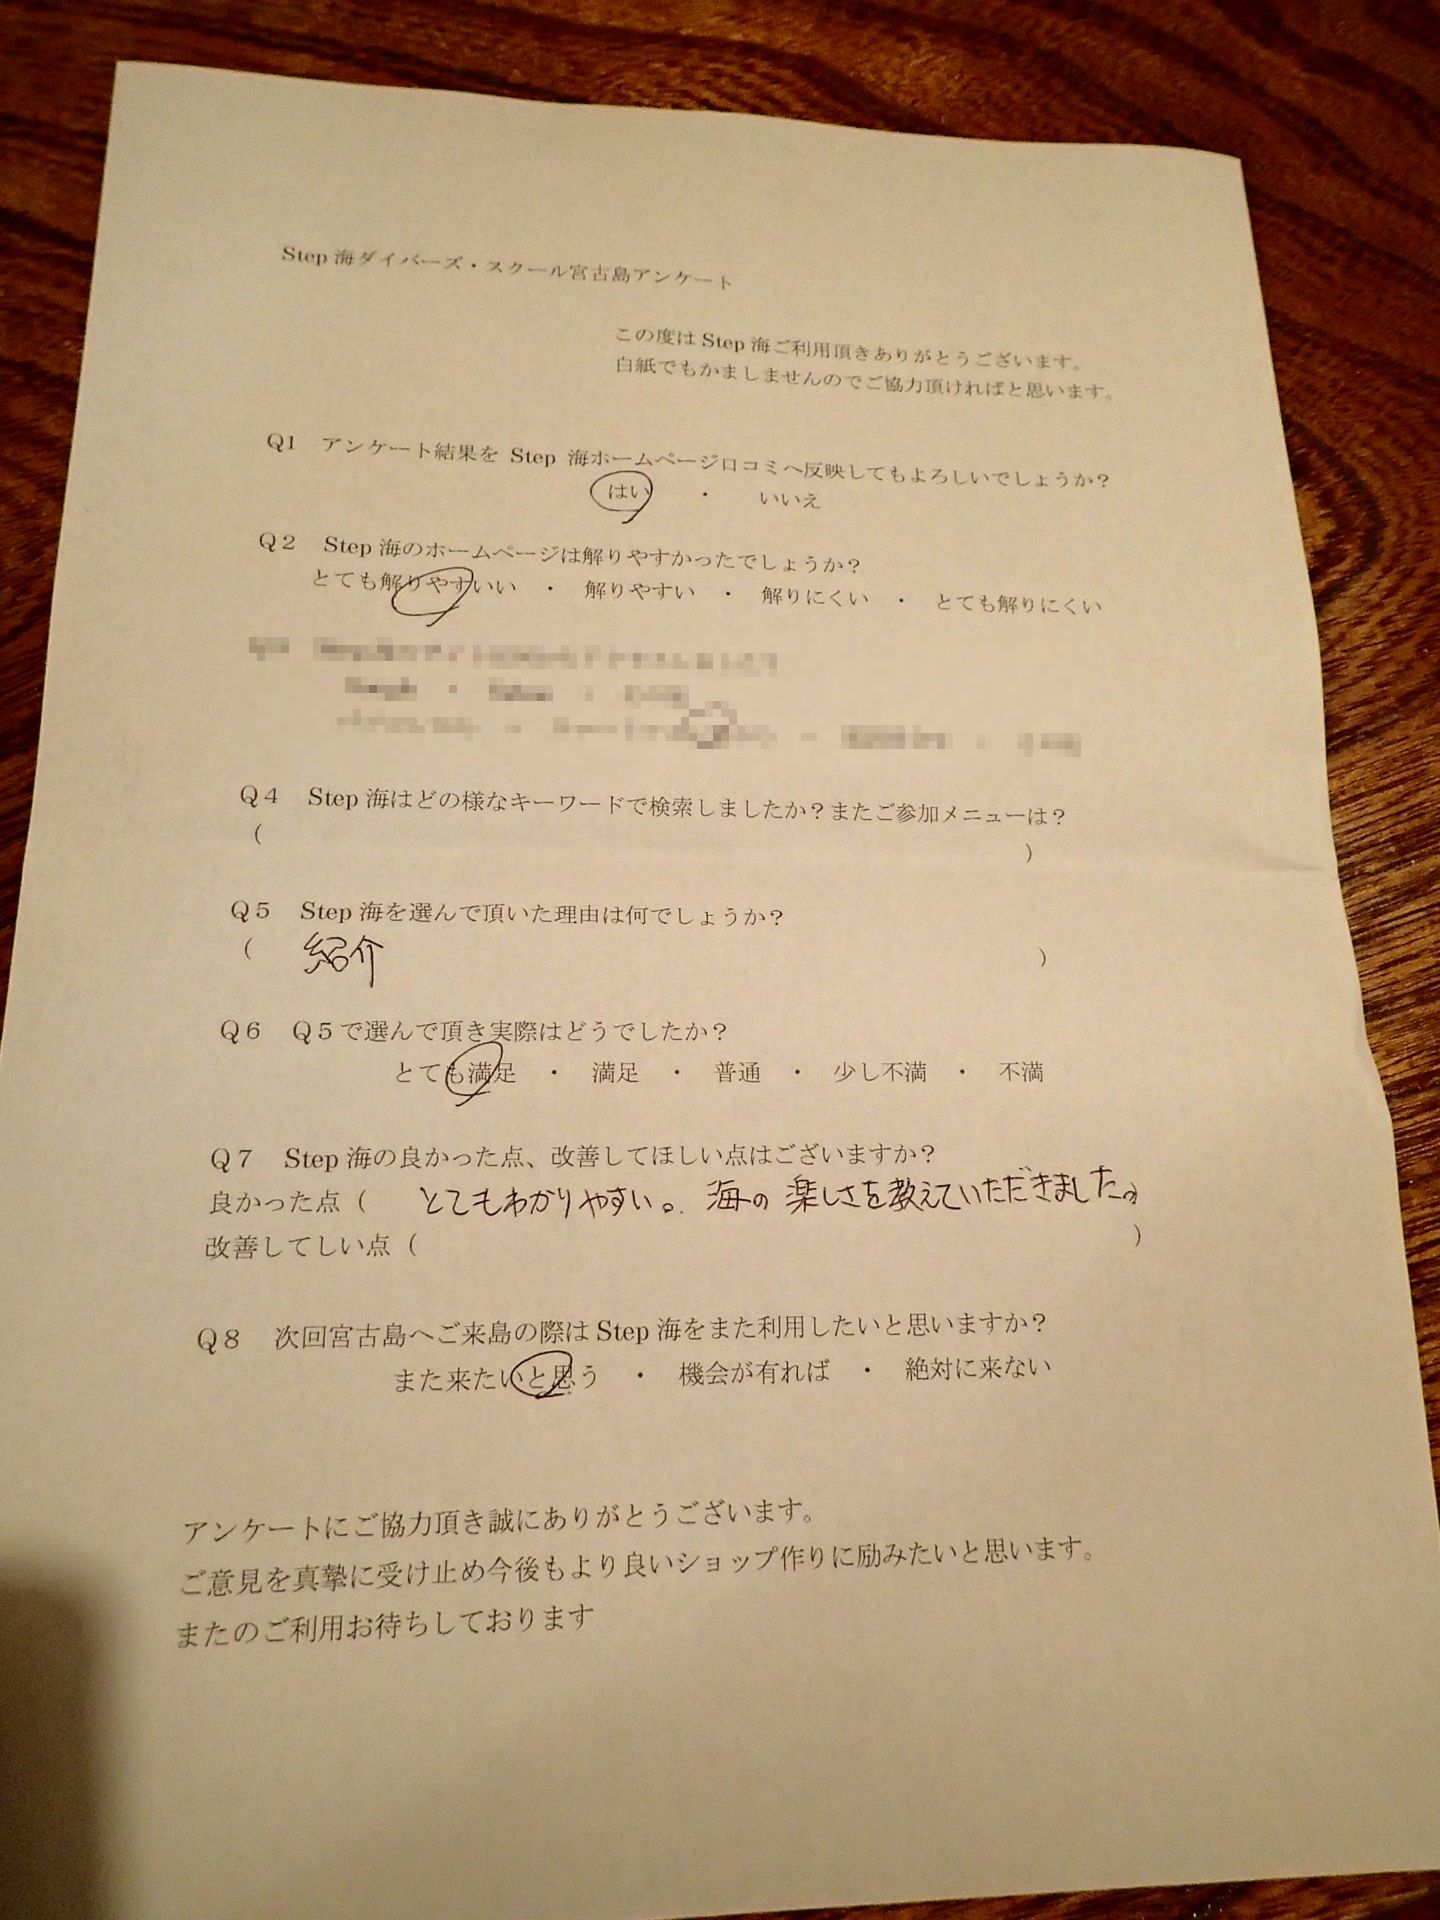 Step 海ダイバーズ・スクール宮古島アンケート
この度は Step 海ご利用頂きありがとうございます。
白紙でもかましませんのでご協力頂ければと思います。
Q1 アンケート結果を Step 海ホームページ口コミへ反映してもよろしいでしょうか？
はい ・ いいえ
Q２ Step 海のホームページは解りやすかったでしょうか？
とても解りやすいい ・ 解りやすい ・ 解りにくい ・ とても解りにくい
Q４ Step 海はどの様なキーワードで検索しましたか？またご参加メニューは？
（ ）
Q５ Step 海を選んで頂いた理由は何でしょうか？
（ 紹介 ）
Q６ Q５で選んで頂き実際はどうでしたか？
とても満足 ・ 満足 ・ 普通 ・ 少し不満 ・ 不満
Q７ Step 海の良かった点、改善してほしい点はございますか？
良かった点（ とてもわかりやすい。海の楽しさを教えていただきました。
改善してしい点（ ）
Q８ 次回宮古島へご来島の際は Step 海をまた利用したいと思いますか？
また来たいと思う ・ 機会が有れば ・ 絶対に来ない
アンケートにご協力頂き誠にありがとうございます。
ご意見を真摯に受け止め今後もより良いショップ作りに励みたいと思います。
またのご利用お待ちしております